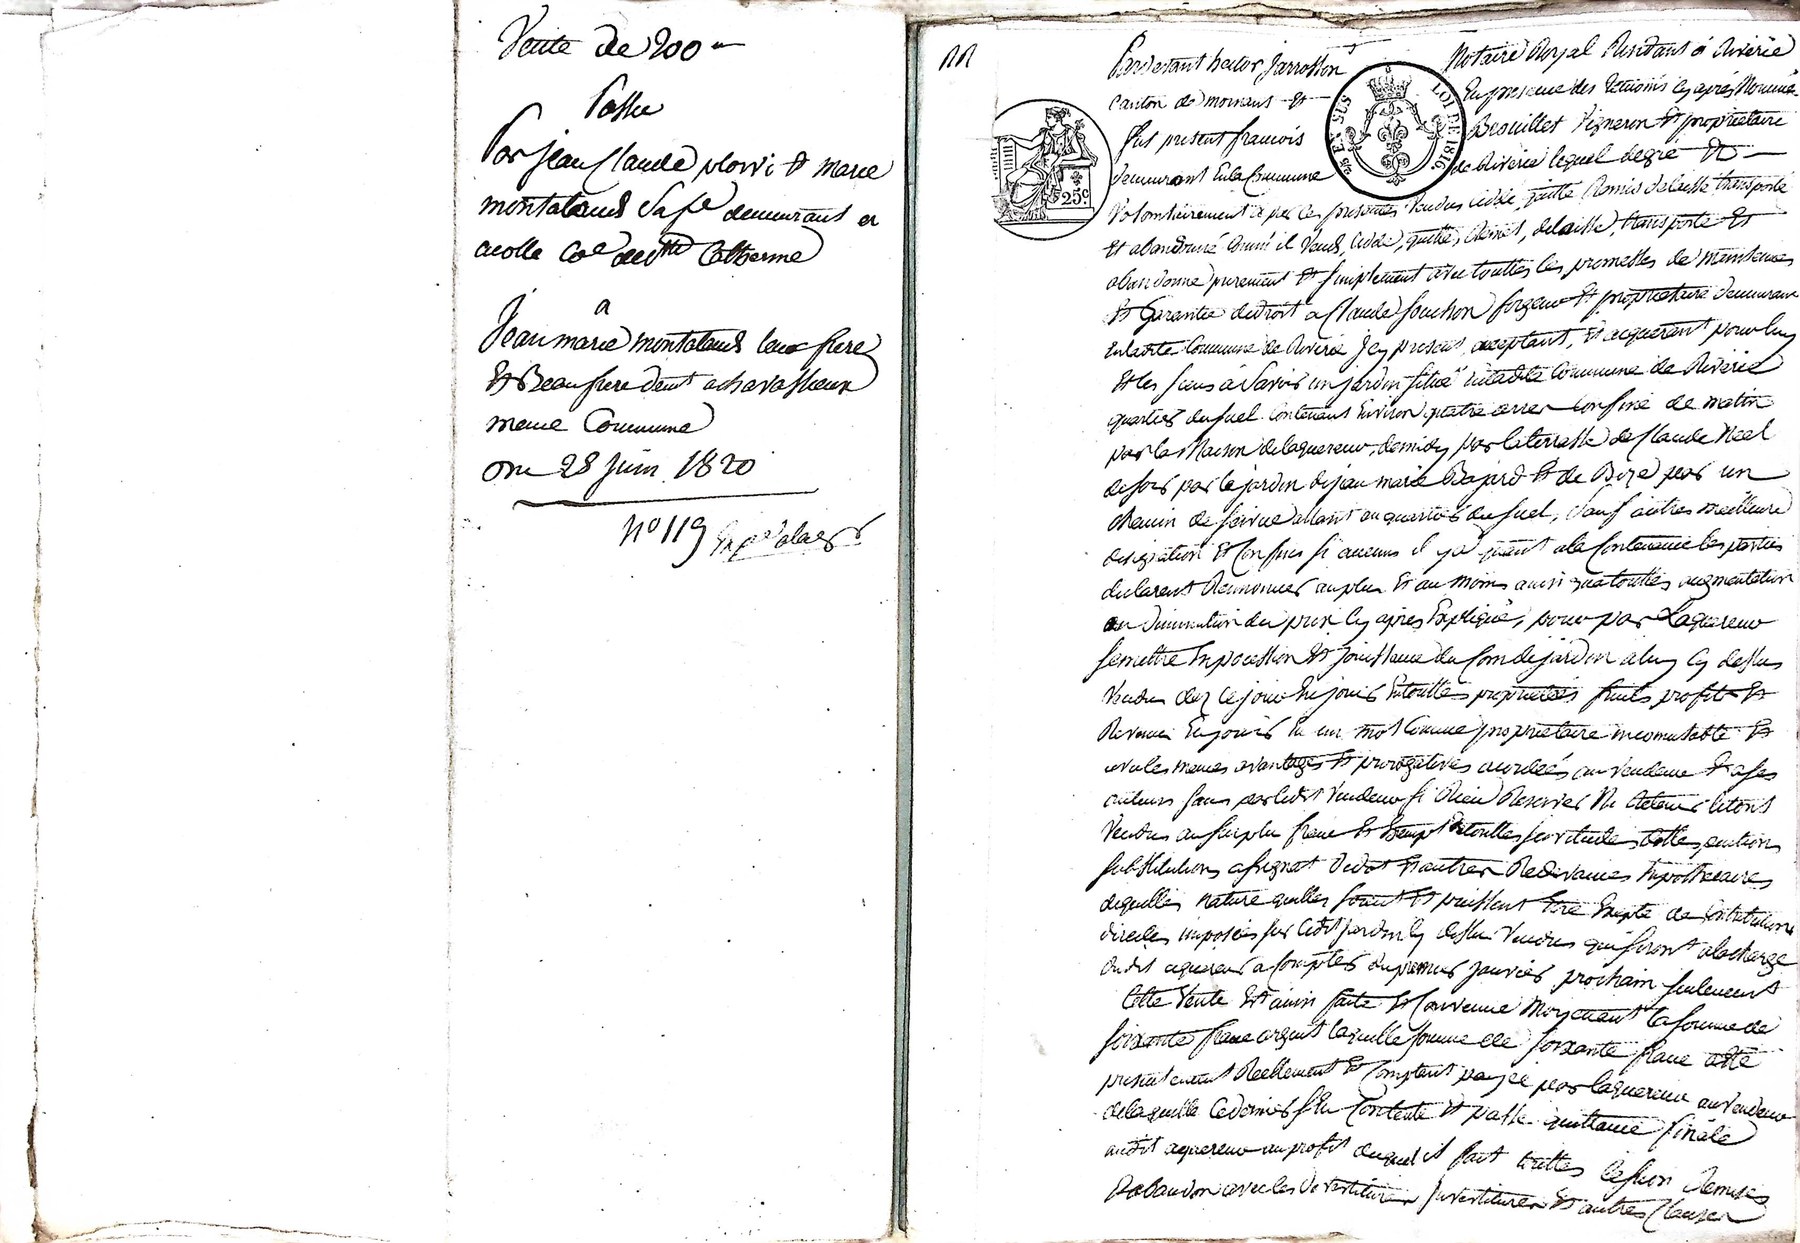 Vente de 200 "
Passée
Par jean Claude plovi et marie
montaland sa fe demeurant a
acolle Coe de Ste Catherine
a
Jean marie montaland leur frere
Et Beaufrere demt a chavassieux
meme Commune
Du 28 juin 1820
No 119
Pardevant hector Jarrosson Notaire Royal Residant à Riverie
canton de mornant Et En presence des temoins cy après Nommés
fut present francois Beouillet Vigneron Et proprietaire
demeurant En la Commune de Riverie lequel de gré Et
Volontairement a par ces presentes Vendu cédé, quitté Remis delaissé transporté
Et abandonné Comme il Vend, Cedde, quitte, Remet, delaisse, transporte Et
abandonne purement Et simplement avec touttes les promesses de maintenue
Et Garantie de droit a Claude souchon forgeur Et proprietaire demeurant
En ladite Commune de Riverie Icy present acceptant, Et acquerant pour luy
Et les siens à Savoir un jardin situé En ladite Commune de Riverie
quartier du fuel Contenant Environ quatre arres Confiné de matin
par la Maison de laquereur, de midy par la terrasse de Claude Neel
de soir par le jardin de jean marie Bajard Et de Bize par un
chemin de service allant au quartier du fuel, Sauf autres meilleure
designation Et Confins si aucuns il y a quant a la Contenance les parties
declarent Renoncer au plus Et au moins ainsi qua touttes augmentation
ou diminution du prix cy après Expliqué, pour par Laquereur
se mettre En pocession Et jouissance du fond de jardin a luy cy dessus
Vendu dez ce jour En jouir En touttes proprietés fruits profits Et
Revenu En jouir En un mot Comme proprietaire incomutable Et
avec les memes avantages Et prerogatives acordées au Vendeur Et a ses
auteurs sans par ledit Vendeur si Rien Reserver Ni Retenir letout
Vendu au surplu franc Et Exempt de touttes servitudes, dettes, cautions
substitutions assignat dedot Et autres Redevances hipothecaires
de quelles nature quelles soient Et puissent Etre Excepté de Contributions
directes imposées sur ledit jardin cy dessus Vendus qui seront a la charge
dudit aquereur a Compter du premier janvier prochain seulement
Cette Vente Est ainsi faite Et Convenue Moyenant la somme de
soixante franc argent laquelle somme de soixante franc a Eté
presentement Reellement Et Comptant payée par laquereur au Vendeur
de laquelle ce dernier sEn Contente Et passe quittance finale
audit aquereur au profit duquel il fait touttes Cession Remises
Et abandon avec les devestitures Investitures Et autres Clauses
LOI DE 1816
25c.
EN SUS